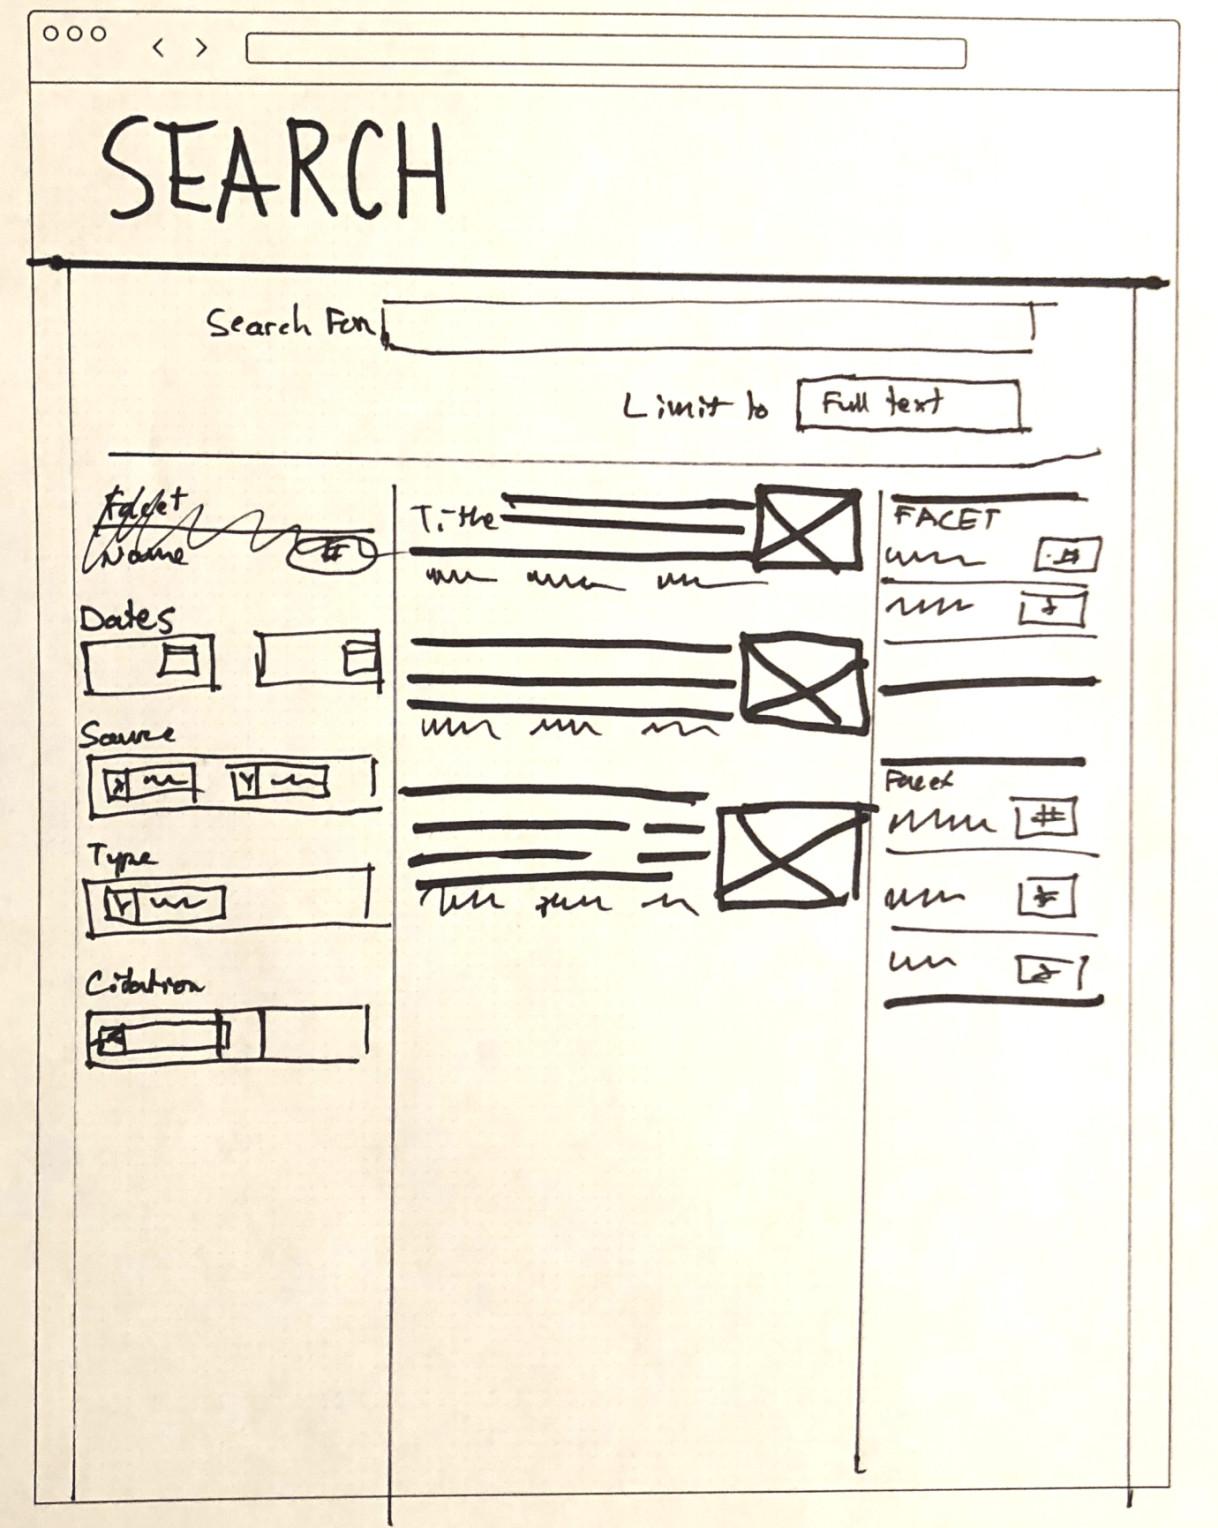 SEARCH
Search For
Limit to Full text
Facet
Name #
Dates
Source
X Y
Type
Y
Citation
X
Title
FACET
#
#
Facet
#
#
#